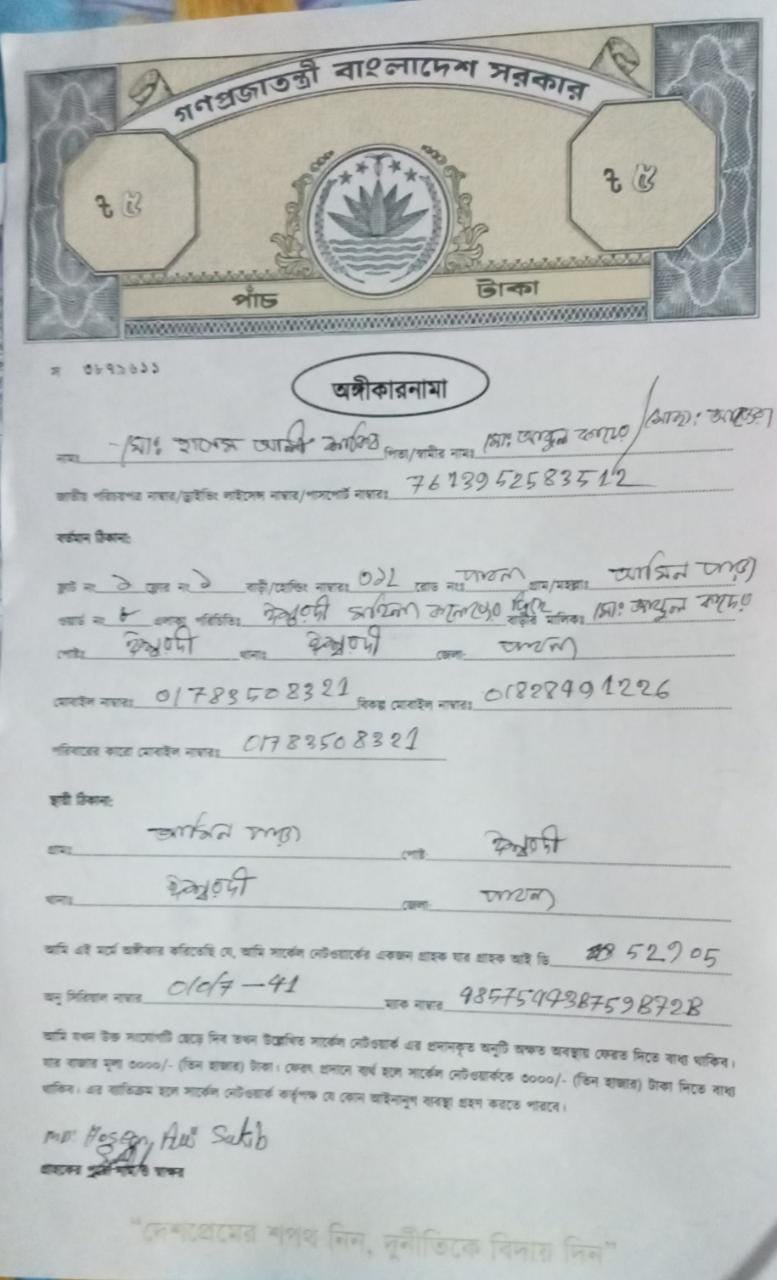 গণপ্রজাতন্ত্রী বাংলাদেশ সরকার
৳ ৫ ৳ ৫
পাঁচ টাকা
অঙ্গীকারনামা
নামঃ মোঃ আলী পিতা/স্বামীর নামঃ মোঃ আব্দুল কাদের
জাতীয় পরিচয়পত্র নাম্বার/ড্রাইভিং লাইসেন্স নাম্বার/পাসপোর্ট নাম্বারঃ 7613952583512
বর্তমান ঠিকানা:
ফ্ল্যাট নং ১ ফ্লোর নং ১ বাড়ী/হোল্ডিং নাম্বারঃ রোড নংঃ পাবনা গ্রাম/মহল্লাঃ আমিন পাড়া
ওয়ার্ড নং ৮ এলাকা পরিচিতিঃ ঈশ্বরদী মহিলা কলেজের বাড়ীর মালিকঃ মোঃ আব্দুল কাদের
পোষ্টঃ ঈশ্বরদী থানাঃ ঈশ্বরদী জেলাঃ পাবনা
মোবাইল নাম্বারঃ 01783508321 বিকল্প মোবাইল নাম্বারঃ 01828491226
পরিবারের কারো মোবাইল নাম্বারঃ 01783508321
স্থায়ী ঠিকানা:
গ্রামঃ আমিন পাড়া পোষ্টঃ ঈশ্বরদী
থানাঃ ঈশ্বরদী জেলাঃ পাবনা
আমি এই মর্মে অঙ্গীকার করিতেছি যে, আমি সার্কেল নেটওয়ার্কের একজন গ্রাহক যার গ্রাহক আই ডি 52905
অনু সিরিয়াল নাম্বার 0/0/7-41 ম্যাক নাম্বার
আমি যখন উক্ত সংযোগটি ছেড়ে দিব তখন উল্লেখিত সার্কেল নেটওয়ার্ক এর প্রদানকৃত অনুটি অক্ষত অবস্থায় ফেরত দিতে বাধ্য থাকিব।
যার বাজার মূল্য ৩০০০/- (তিন হাজার) টাকা। ফেরৎ প্রদানে ব্যর্থ হলে সার্কেল নেটওয়ার্ককে ৩০০০/- (তিন হাজার) টাকা দিতে বাধ্য
থাকিব। এর ব্যতিক্রম হলে সার্কেল নেটওয়ার্ক কর্তৃপক্ষ যে কোন আইনানুগ ব্যবস্থা গ্রহণ করতে পারবে।
MD: Hosen Ali Sakib
গ্রাহকের পূর্ণ নাম ও স্বাক্ষর
"দেশপ্রেমের শপথ নিন, দুর্নীতিকে বিদায় দিন"